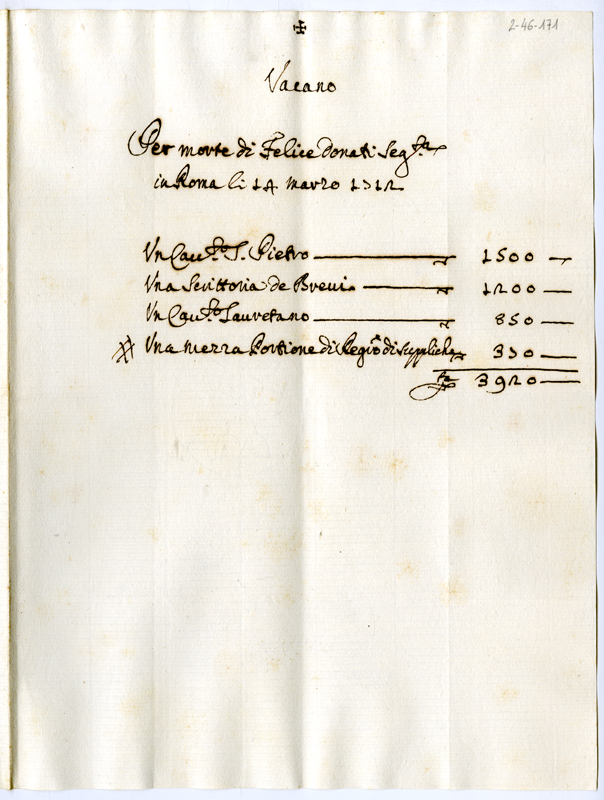 ✠
2-46-171
Vacano
Per morte di Felice Donati Seg.ta
in Roma li 14 marzo 1712
Un Cau.to S. Pietro 1500
Una Scrittoria de Breui 1200
Un Cau.to Lauretano 850
# Una mezza Portione di Reg.ro di suppliche 370
3920